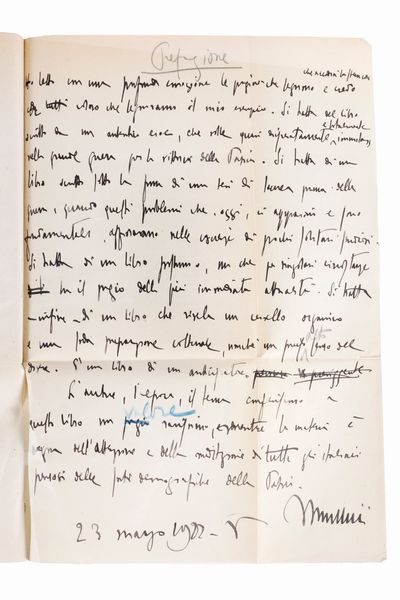 Prefazione
Ho letto con una profonda emozione le pagine che seguono e credo
che tutti coloro che leggeranno il mio esempio. Si tratta del libro
scritto da un autentico eroe, che volle quasi
nella grande guerra per la vittoria della Patria. Si tratta di un
libro scritto sotto la forma di una tesi di laurea prima della
guerra, quando questi problemi che, oggi, ci appaiono e sono
fondamentali, affioravano nelle coscienze di pochi solitari
Si tratta di un libro postumo, ma che per singolari circostanze
ha il pregio della più immediata attualità. Si tratta
infine di un libro che rivela un cervello organico
e una soda preparazione culturale, nonché un senso del
dovere. È un libro di un anticipatore.
L'autore, l'epoca, il tema conferiscono a
questo libro un valore grandissimo, la materia è
degna dell'attenzione e della meditazione di tutti gli italiani
pensosi delle sorti demografiche della Patria.
Mussolini
23 marzo 1928 - V